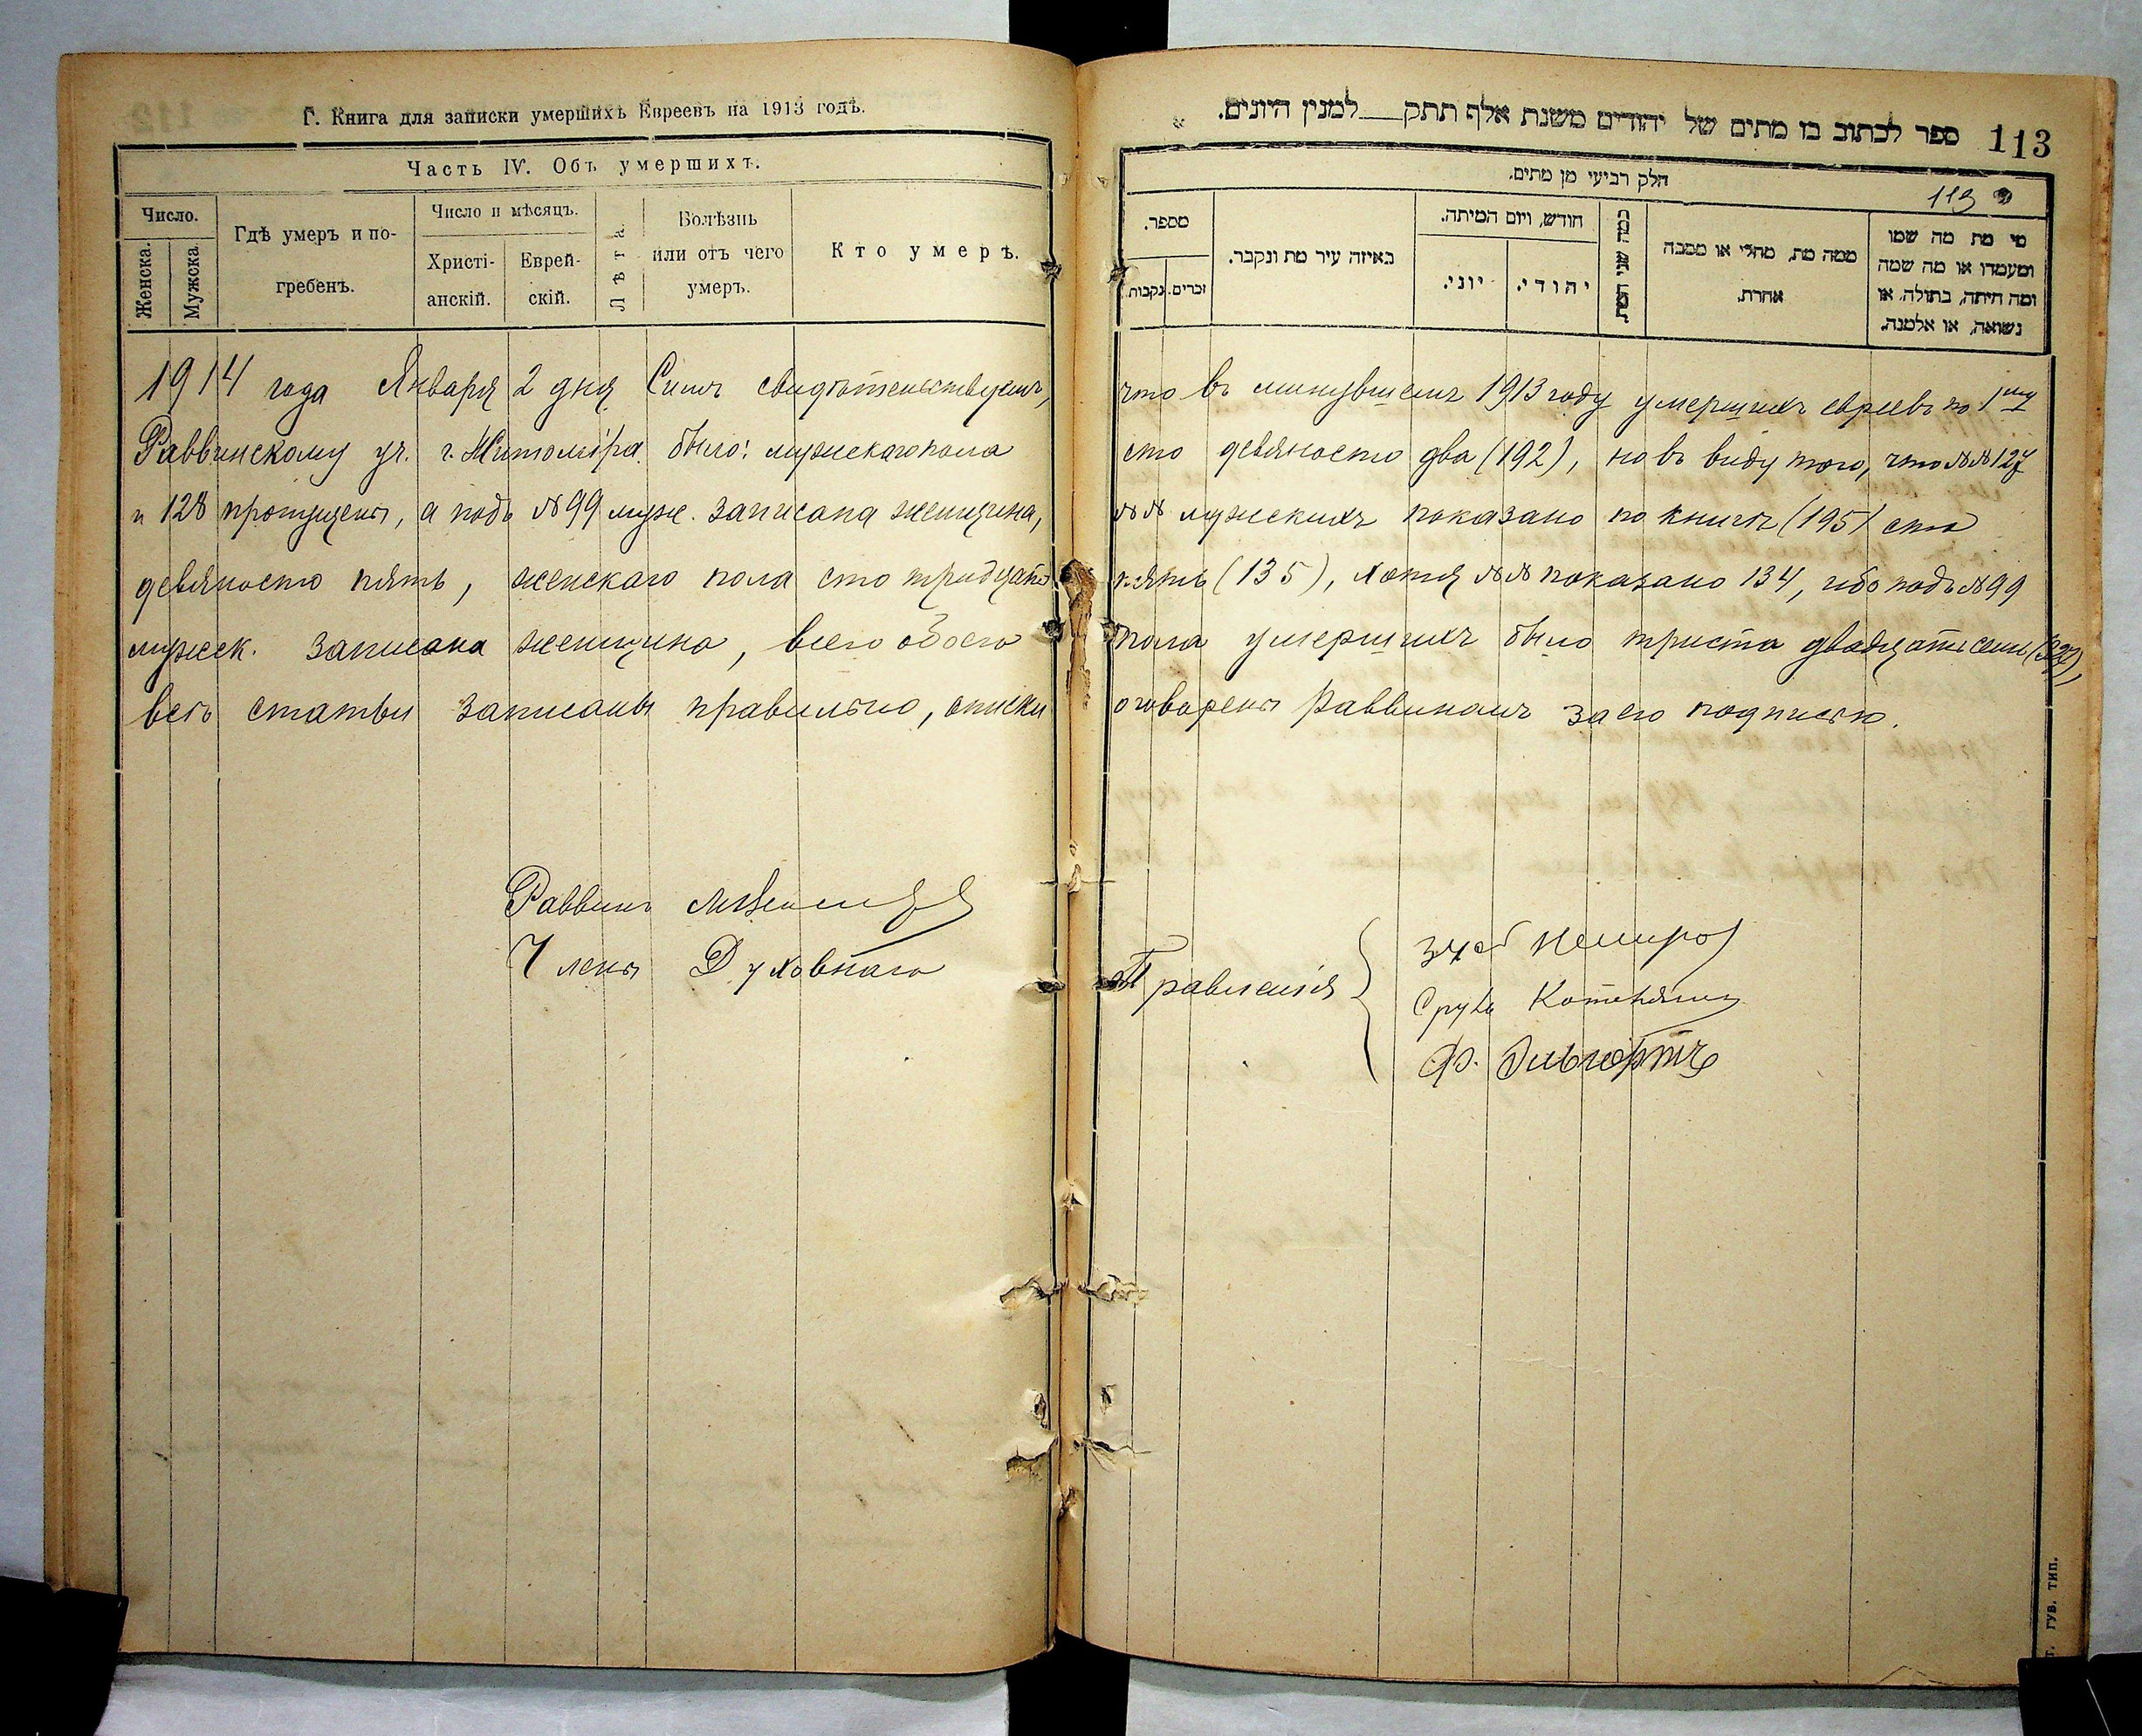 Г. Книга для записки умершихъ Евреевъ на 1913 годъ.
Часть IV. Объ умершихъ.
Число.
Женска.
Мужска.
Гдѣ умеръ и по-
гребенъ.
Число и мѣсяцъ.
Христі-
анскій.
Еврей-
скій.
Лѣта.
Болѣзнь
или отъ чего
умеръ.
Кто умеръ.
113 ספר לכתוב בו מתים של יהודים משנת אלף תתק ‏למנין היונים.
חלק רביעי מן מתים.
113
מספר.
נקבות.
זכרים.
באיזה עיר מת ונקבר.
חודש, ויום המיתה.
יוני.
יהודי.
כמה שני המת
ממה מת, מחלי או מסבה
אחרת.
מי מת מה שמו
ומעמדו או מה שמה
ומה היתה, בתולה, או
נשואה, או אלמנה.
1914 года Января 2 дня Симъ свидѣтельствуемъ, что въ минувшемъ 1913 году умершихъ евреевъ по 1му
Раввинскому уч. г. Житоміра было: мужескаго пола сто девяносто два (192), но въ виду того, что №№ 127
и 128 пропущены, а подъ №99 муж. записана женщина, №№ мужскихъ показано по книгѣ (195) сто
девяносто пять, женскаго пола сто тридцать пять (135), хотя №№ показано 134, ибо подъ №99
мужск. записана женщина, всего обоего пола умершихъ было триста двадцать семь (327),
всѣ статьи записаны правильно, описки оговорены Раввиномъ за его подписью.
Раввинъ
Члены Духовнаго Правленія
Срулъ
Ф.
ГУБ. ТИП.